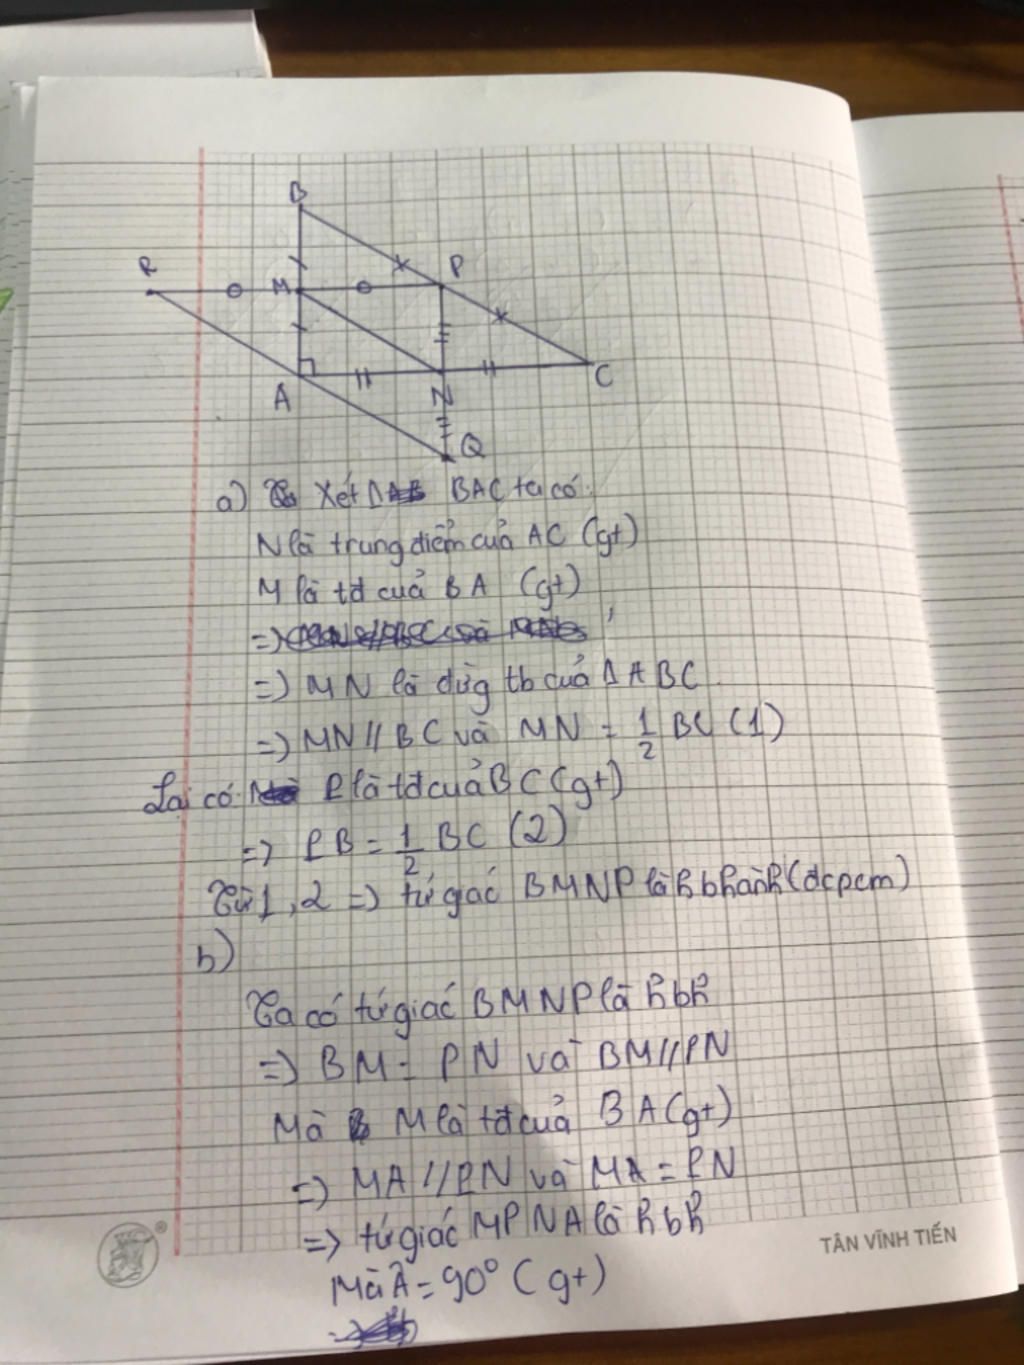 B
R
M
P
A
N
C
Q
a) Xét Δ BAC ta có:
N là trung điểm của AC (gt)
M là tđ của BA (gt)
=>
=> MN là đừg tb của Δ ABC
=> MN // BC và MN = 1/2 BC (1)
Lại có P là tđ của BC (gt)
=> PB = 1/2 BC (2)
Từ 1, 2 => tứ giác BMNP là h bhành (đcpcm)
b)
Ta có tứ giác BMNP là hbh
=> BM = PN và BM // PN
Mà M là tđ của BA (gt)
=> MA // PN và MA = PN
=> tứ giác MPNA là hbh
TÂN VĨNH TIẾN
Mà Â = 90° (gt)
=>